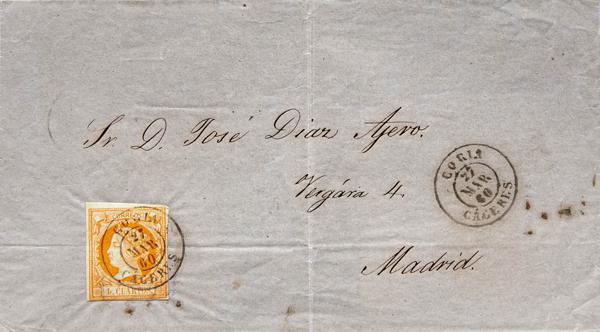 Sr. D. José Diaz Agero.
Vergára 4.
Madrid.
CORIA
27
MAR
60
CÁCERES
CORREOS
CORIA
27
MAR
60
CÁCERES
4 CUARTOS